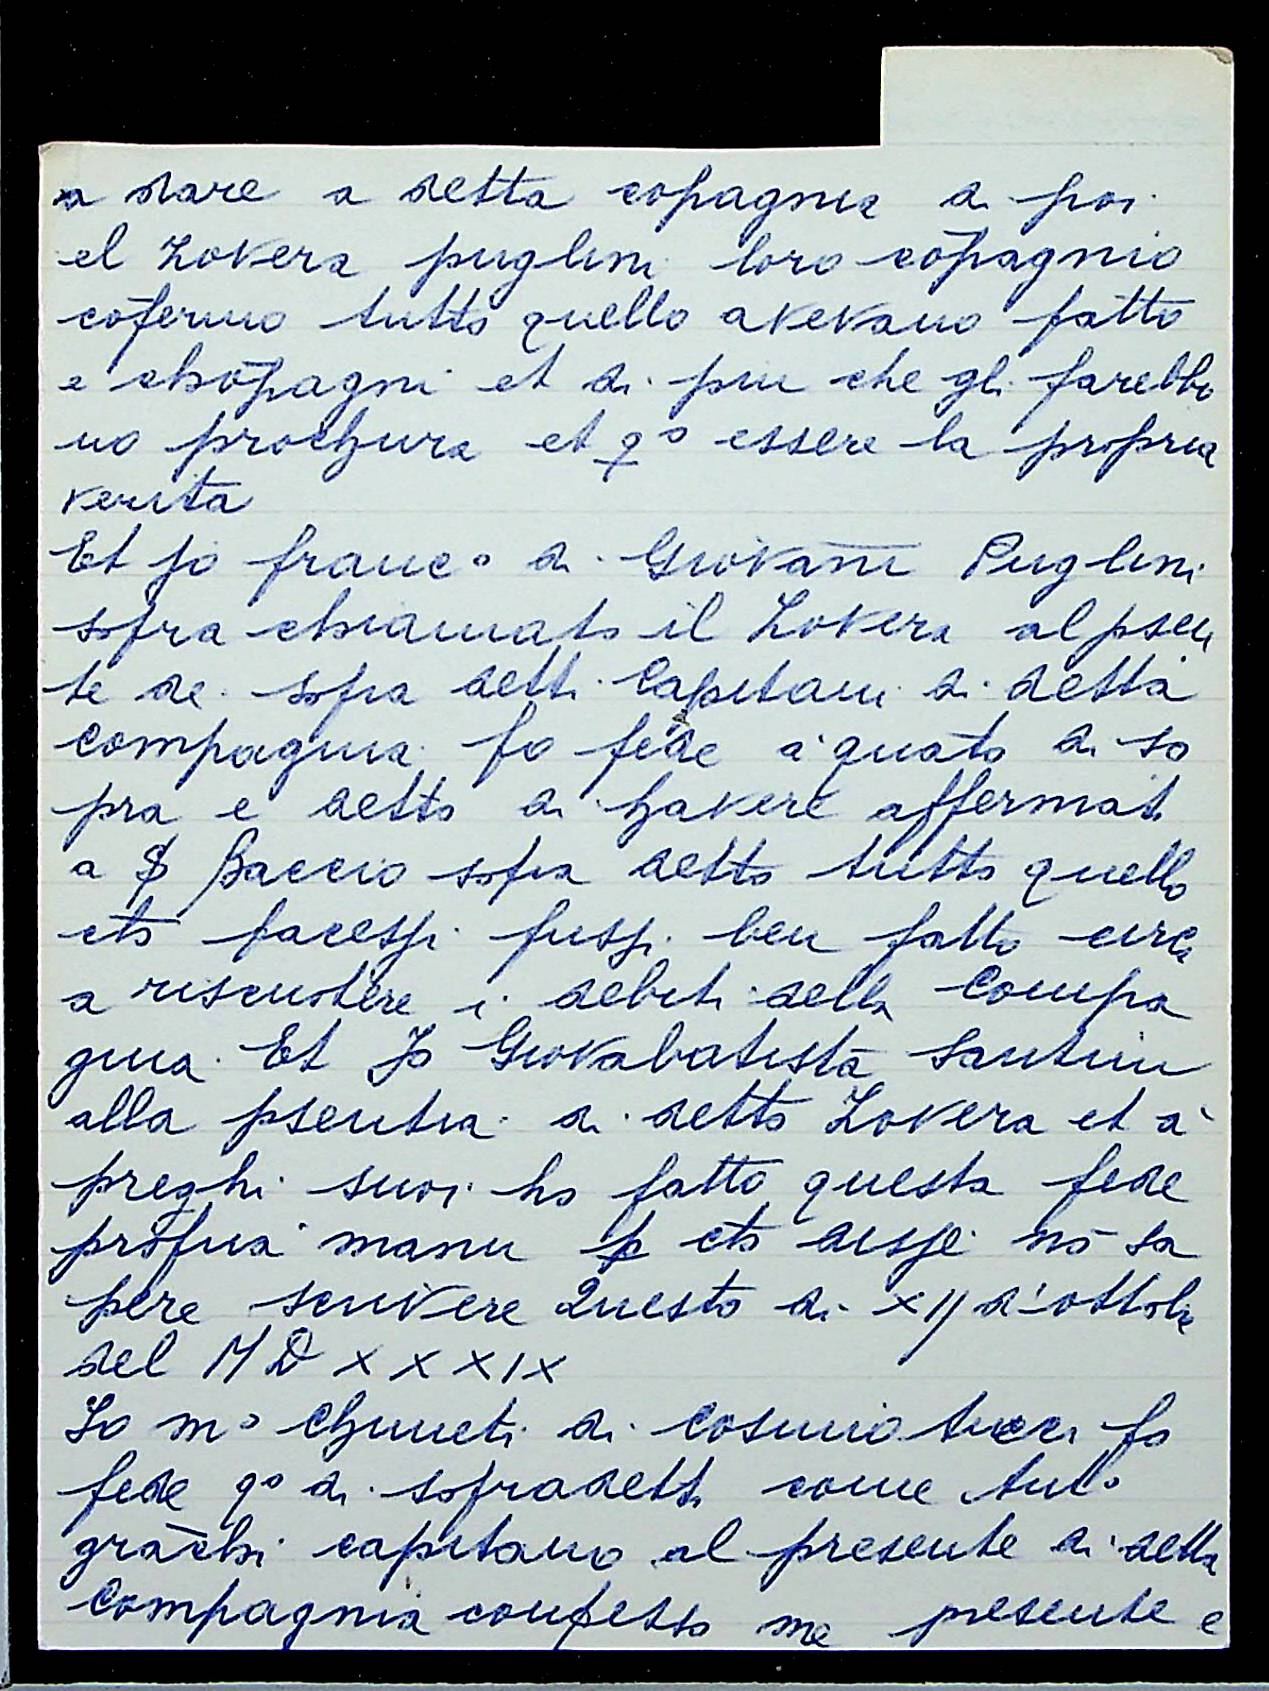 a dare a detta copagnia di poi
el Lovera puglini loro copagnio
cofermo tutto quello avevano fatto
e chopagni et di piu che gli farebbo
no prochura et qo essere la propria
verita
Et jo franco di Giovani Puglini
sopra chiamato il Lovera al psen
te de sopra detti Capitani di detta
compagnia fo fede a quato di so
pra e detto di havere affermato
a Baccio sopra detto tutto quello
cho facessi fussi ben fatto circa
a riscuotere i debiti della Compa
gnia Et Jo Giovabatista Santini
alla psentia di detto Lovera et à
preghi suoi ho fatto questa fede
propria manu p cho disse nō sa
pere scrivere Questo di XIJ d'ottobre
del MDXXXIX
Io mo Chimeti di Cosimo tucci fo
fede qo di sopradetti come
capitano al presente di detta
Compagnia confesso me presente e